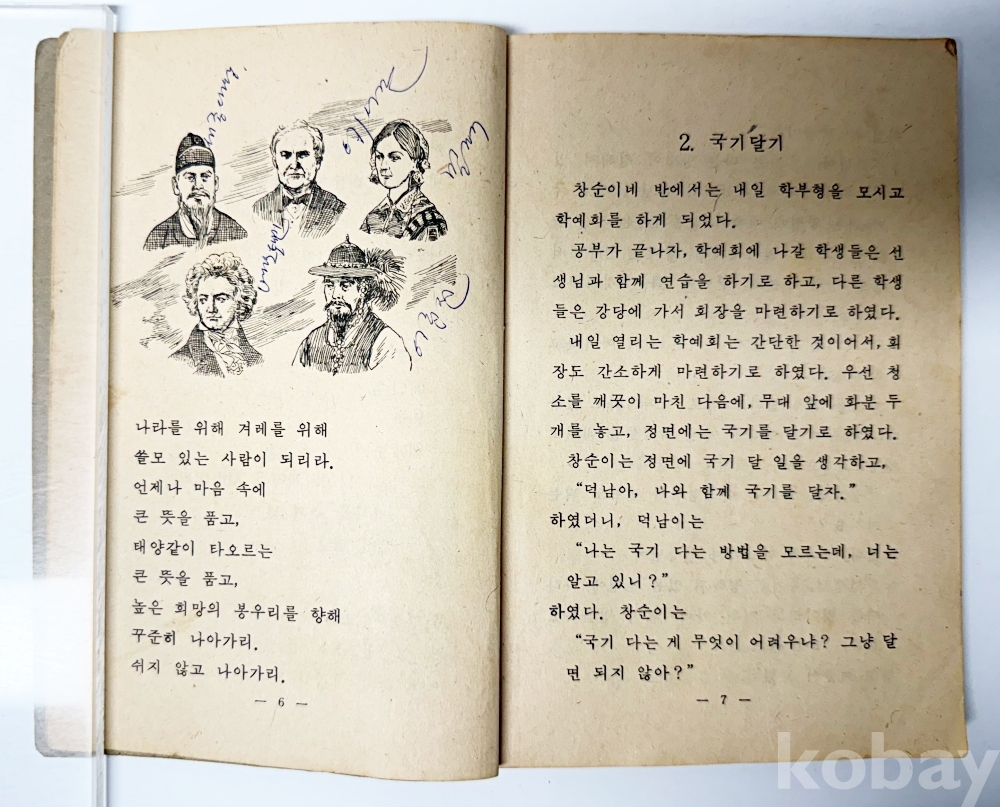 나라를 위해 겨레를 위해
쓸모 있는 사람이 되리라.
언제나 마음 속에
큰 뜻을 품고,
태양같이 타오르는
큰 뜻을 품고,
높은 희망의 봉우리를 향해
꾸준히 나아가리.
쉬지 않고 나아가리.
— 6 —
2. 국기달기
창순이네 반에서는 내일 학부형을 모시고
학예회를 하게 되었다.
공부가 끝나자, 학예회에 나갈 학생들은 선
생님과 함께 연습을 하기로 하고, 다른 학생
들은 강당에 가서 회장을 마련하기로 하였다.
내일 열리는 학예회는 간단한 것이어서, 회
장도 간소하게 마련하기로 하였다. 우선 청
소를 깨끗이 마친 다음에, 무대 앞에 화분 두
개를 놓고, 정면에는 국기를 달기로 하였다.
창순이는 정면에 국기 달 일을 생각하고,
“덕남아, 나와 함께 국기를 달자.”
하였더니, 덕남이는
“나는 국기 다는 방법을 모르는데, 너는
알고 있니?”
하였다. 창순이는
“국기 다는 게 무엇이 어려우냐? 그냥 달
면 되지 않아?”
— 7 —
kobay